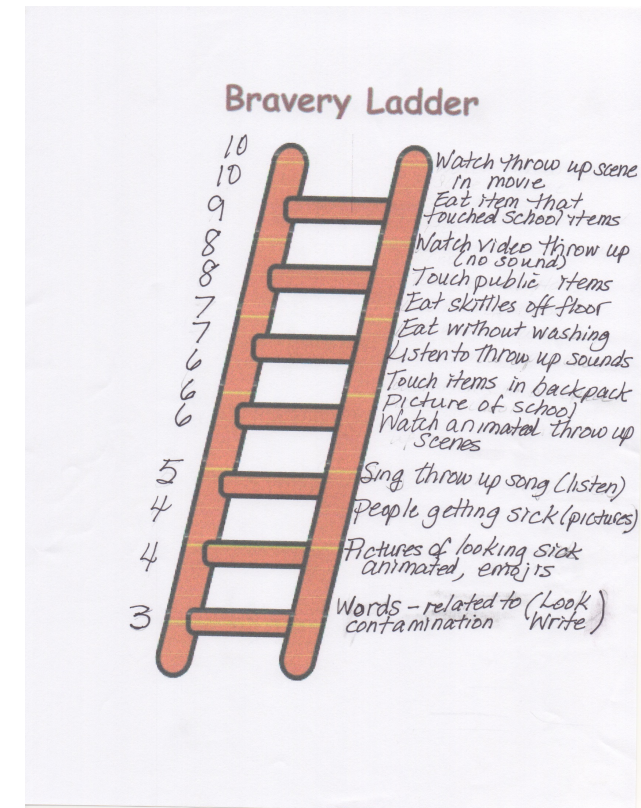 Bravery Ladder
10
Watch throw up scene
in movie
10
Eat item that
touched school items
9
Watch video throw up
(no sound)
8
Touch public items
8
Eat skittles off floor
7
Eat without washing
7
Listen to throw up sounds
6
Touch items in backpack
6
Picture of school
6
Watch animated throw up
scenes
5
Sing throw up song (listen)
4
People getting sick (pictures)
4
Pictures of looking sick
animated, emojis
3
Words - related to (Look
contamination Write)